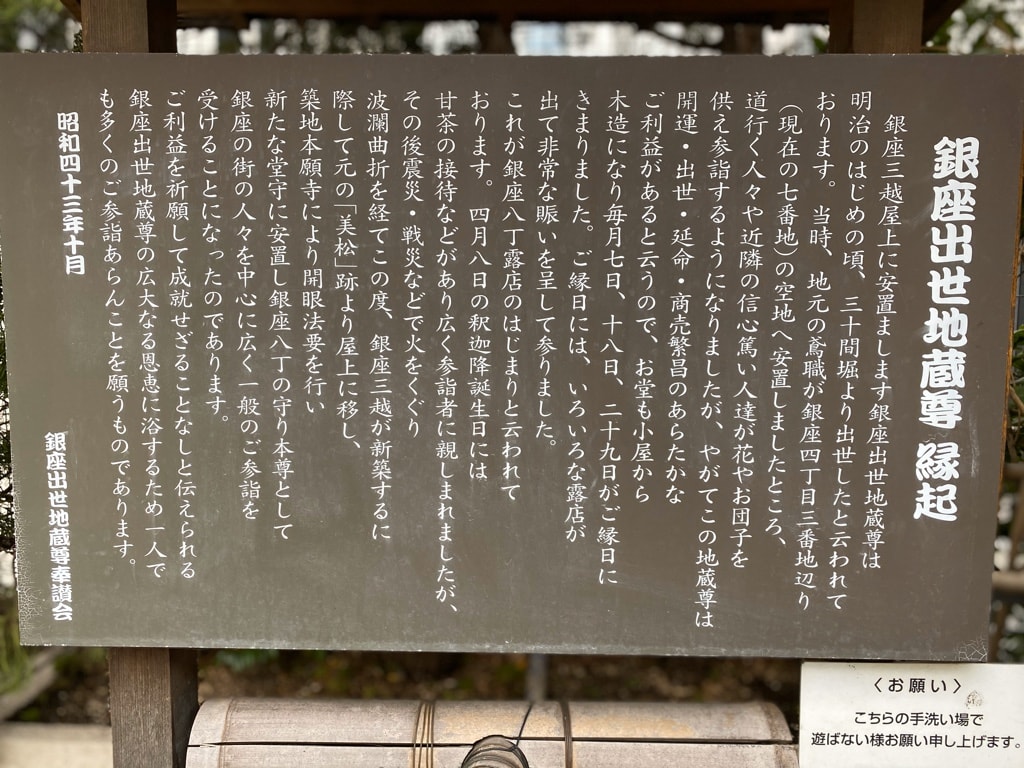 銀座出世地蔵尊 縁起
銀座三越屋上に安置まします銀座出世地蔵尊は
明治のはじめの頃、三十間堀より出世したと云われて
おります。当時、地元の鳶職が銀座四丁目三番地辺り
（現在の七番地）の空地へ安置しましたところ、
道行く人々や近隣の信心篤い人達が花やお団子を
供え参詣するようになりましたが、やがてこの地蔵尊は
開運・出世・延命・商売繁昌のあらたかな
ご利益があると云うので、お堂も小屋から
木造になり毎月七日、十八日、二十九日がご縁日に
きまりました。ご縁日には、いろいろな露店が
出て非常な賑いを呈して参りました。
これが銀座八丁露店のはじまりと云われて
おります。四月八日の釈迦降誕生日には
甘茶の接待などがあり広く参詣者に親しまれましたが、
その後震災・戦災などで火をくぐり
波瀾曲折を経てこの度、銀座三越が新築するに
際して元の「美松」跡より屋上に移し、
築地本願寺により開眼法要を行い
新たな堂守に安置し銀座八丁の守り本尊として
銀座の街の人々を中心に広く一般のご参詣を
受けることになったのであります。
ご利益を祈願して成就せざることなしと伝えられる
銀座出世地蔵尊の広大なる恩恵に浴するため一人で
も多くのご参詣あらんことを願うものであります。
昭和四十三年十月
銀座出世地蔵尊奉讃会
〈お願い〉
こちらの手洗い場で
遊ばない様お願い申し上げます。